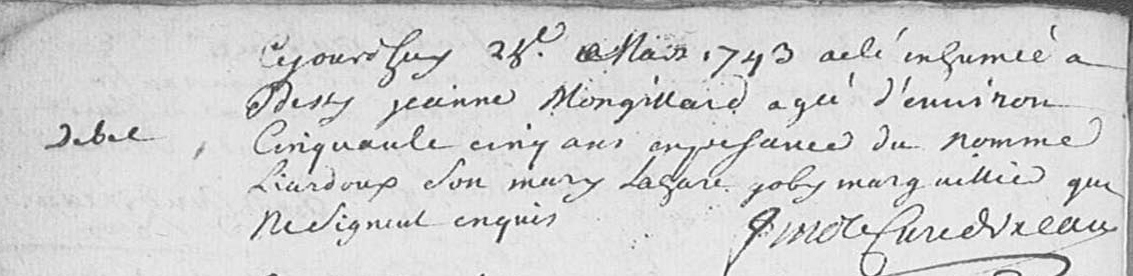 Cejourdhuy 28e. Mars 1743 aeté inhumée a
Bessy jeanne Mongillard agée d'environ
debes Cinquante cinq ans enpresance du nommé
Liardoux Son mary Lazare joby marguillié qui
Ne Signent enquis
Curé